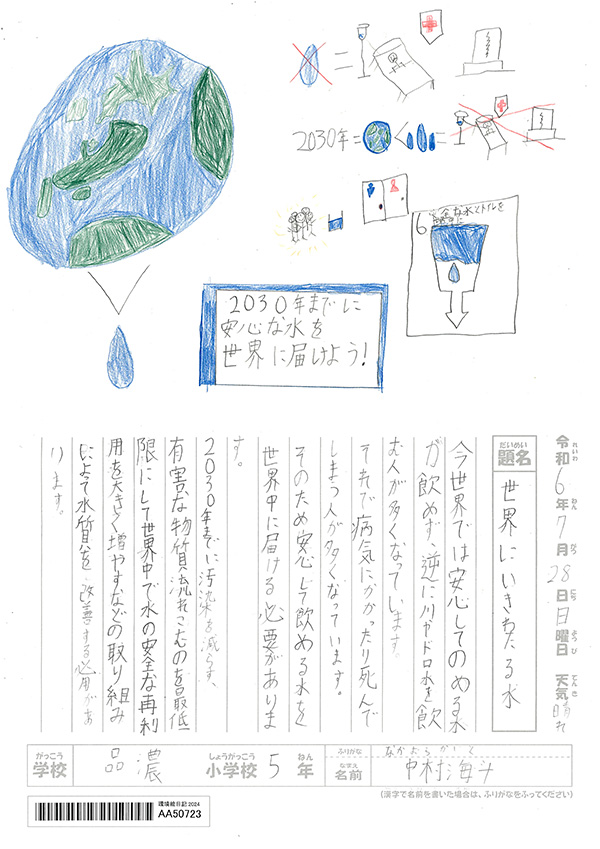 2030年=
6
安全な水とトイレを
世界中に
2030年までに
安心な水を
世界に届けよう!
令和6年7月28日日曜日 天気晴れ
れいわ ねん がつ にち ようび てんき
だいめい
題名
世界にいきわたる水
今世界では安心してのめる水
が飲めず、逆に川やドロ水を飲
む人が多くなっています。
それで病気にかかったり死んで
しまう人が多くなっています。
そのため安心して飲める水を
世界中に届ける必要がありま
す。
2030年までに汚染を減らす、
有害な物質流れこむのを最低
限にして世界中で水の安全な再利
用を大きく増やすなどの取り組み
によって水質を改善する必用があ
ります。
がっこう しょうがっこう ねん
学校 品濃 小学校 5年
ふりがな なかむらかいと
なまえ
名前 中村海斗
(漢字で名前を書いた場合は、ふりがなをふってください)
環境絵日記2024
AA50723